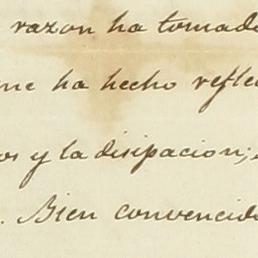 razon ha tomado
me ha hecho refle
os y la disipacion;
. Bien convencido